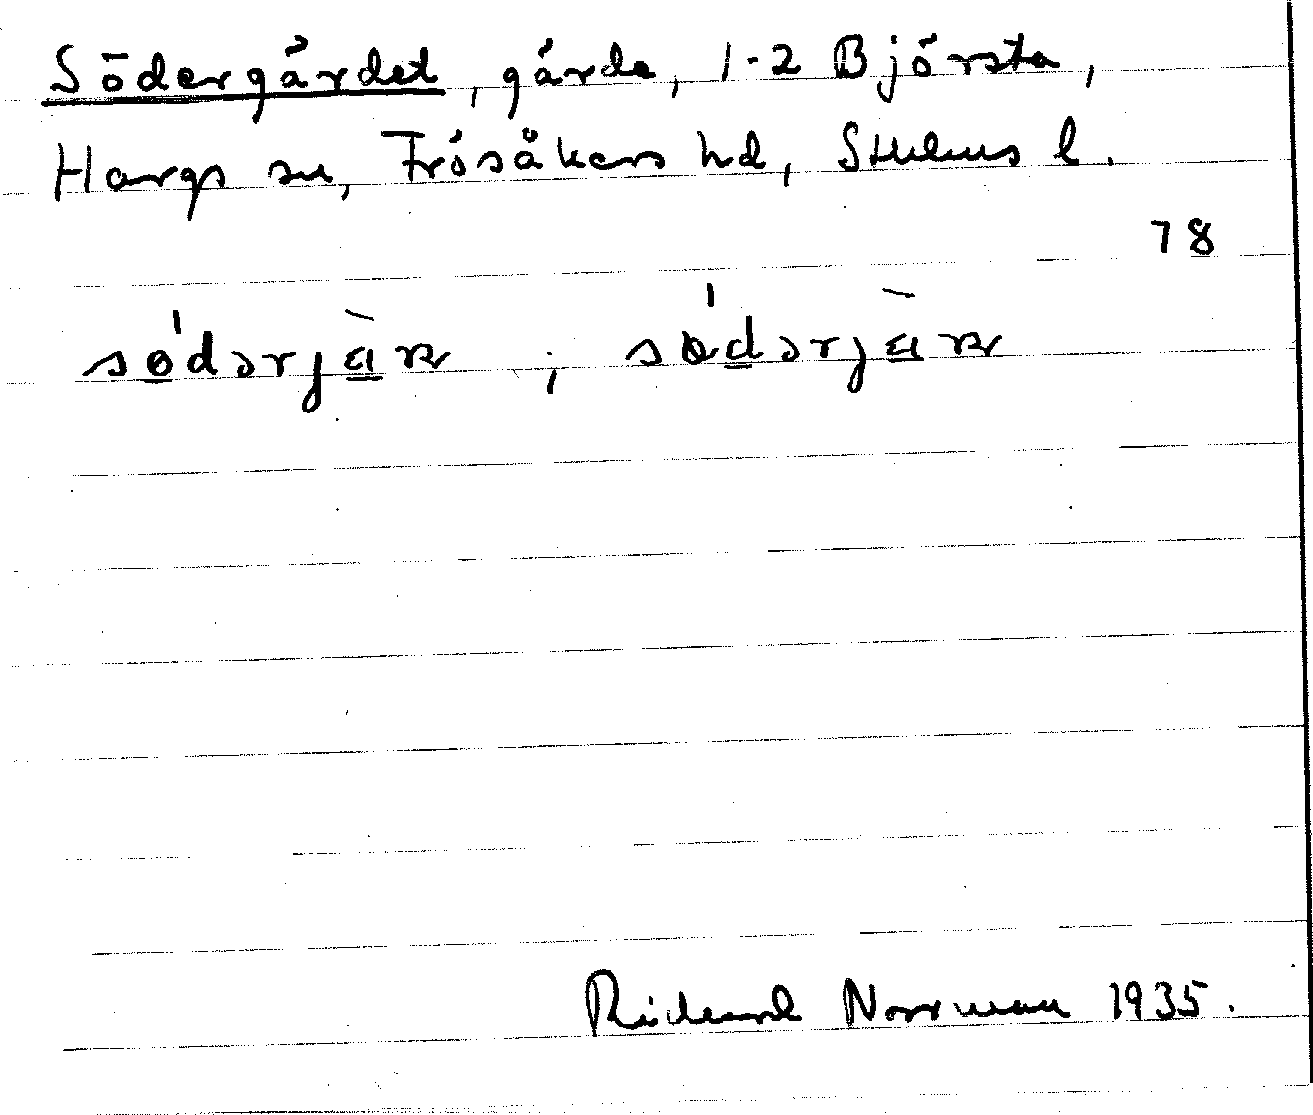 Södergärdet, gärde, 1-2 Björsta,
Hargs sn, Frösåkers hd, Sthlms l.
78
södərjäṛ ; södərjäṛ
Rickard Norrman 1935.